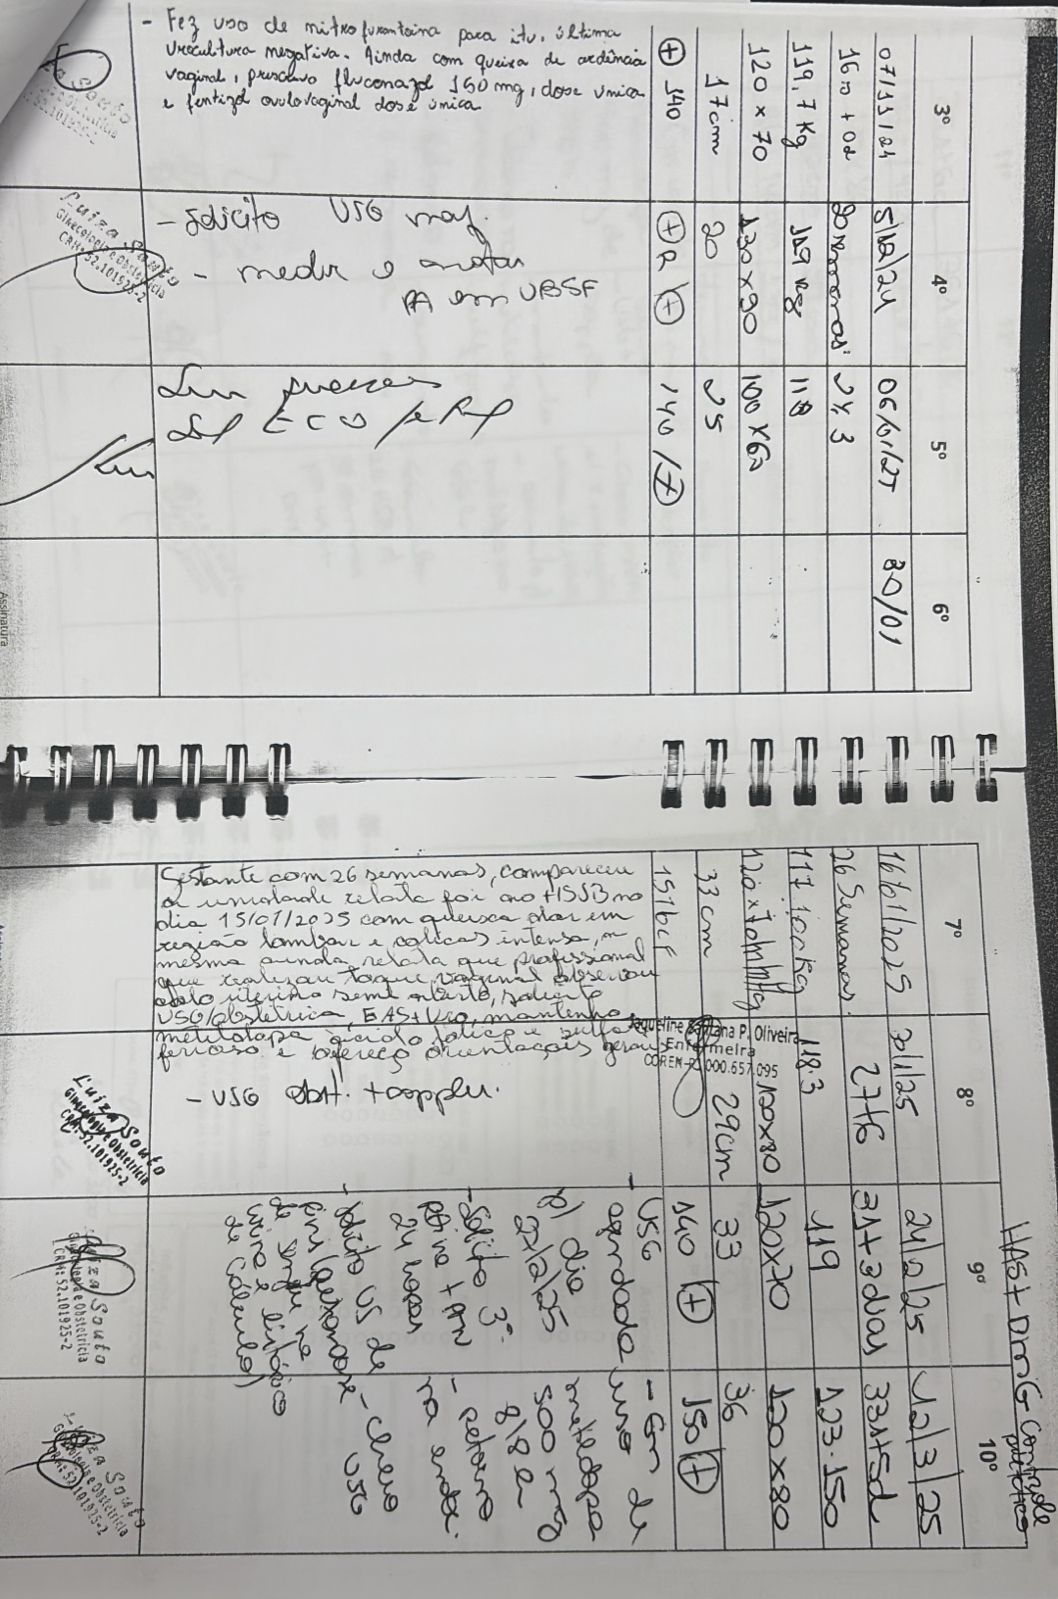 3º
07/11/24
16s + 02
119,7 Kg
120 x 70
17cm
(+) 140
- Fez uso de nitrofurantoina para itu, última
urocultura negativa. Ainda com queixa de ardência
vaginal, prescrevo fluconazol 150 mg, dose única
e fentizol ovulo vaginal dose única
4º
5/12/24
20 semanas
119 kg
130x90
20
- Solicito USG morf.
- medir e anotar
PA em UBSF
Luiza Souto
Ginecologia e Obstetrícia
CRM: 52.101925-2
5º
06/01/25
24.3
118
100x60
25
140/(+)
Sem queixas
6º
30/01
Assinatura
7º
16/01/2025
26 Semanas
33 cm
151bcf
Gestante com 26 semanas, compareceu
a unidade relata foi ao
dia 15/01/2025 com queixa dor em
região lombar e cólicas intensa, a
mesma ainda relata que profissional
que realizou toque vaginal observou
colo uterino semi aberto, solicito
USG/obstetrica, EAS+Uro, mantenho
metildopa, ácido folico e sulfato
ferroso e ofereço orientações gerais
Jaqueline Santana P. Oliveira
Enfermeira
COREN-RJ 000.657.095
8º
30/1/25
27+6
118.3
120x80
29cm
- USG obst. + doppler.
Luiza Souto
Ginecologia e Obstetrícia
CRM: 52.101925-2
HAS+ DMG Controle
9º
24/2/25
31+3dias
119
120x70
33
140 (+)
- USG
agendada
p/ dia
27/2/25
- Solicito 3ª
rotina + PTN
24 horas
- Solicito US de
rins
de sangue na
urina e histórico
de cálculo)
Luiza Souto
Ginecologia e Obstetrícia
CRM: 52.101925-2
10º
12/3/25
33s+5d
123.150
120x80
36
150 (+)
- Em
uso de
metildopa
500 mg
8/8 h
- retorno
- Checo
USG
Luiza Souto
Ginecologia e Obstetrícia
CRM: 52.101925-2